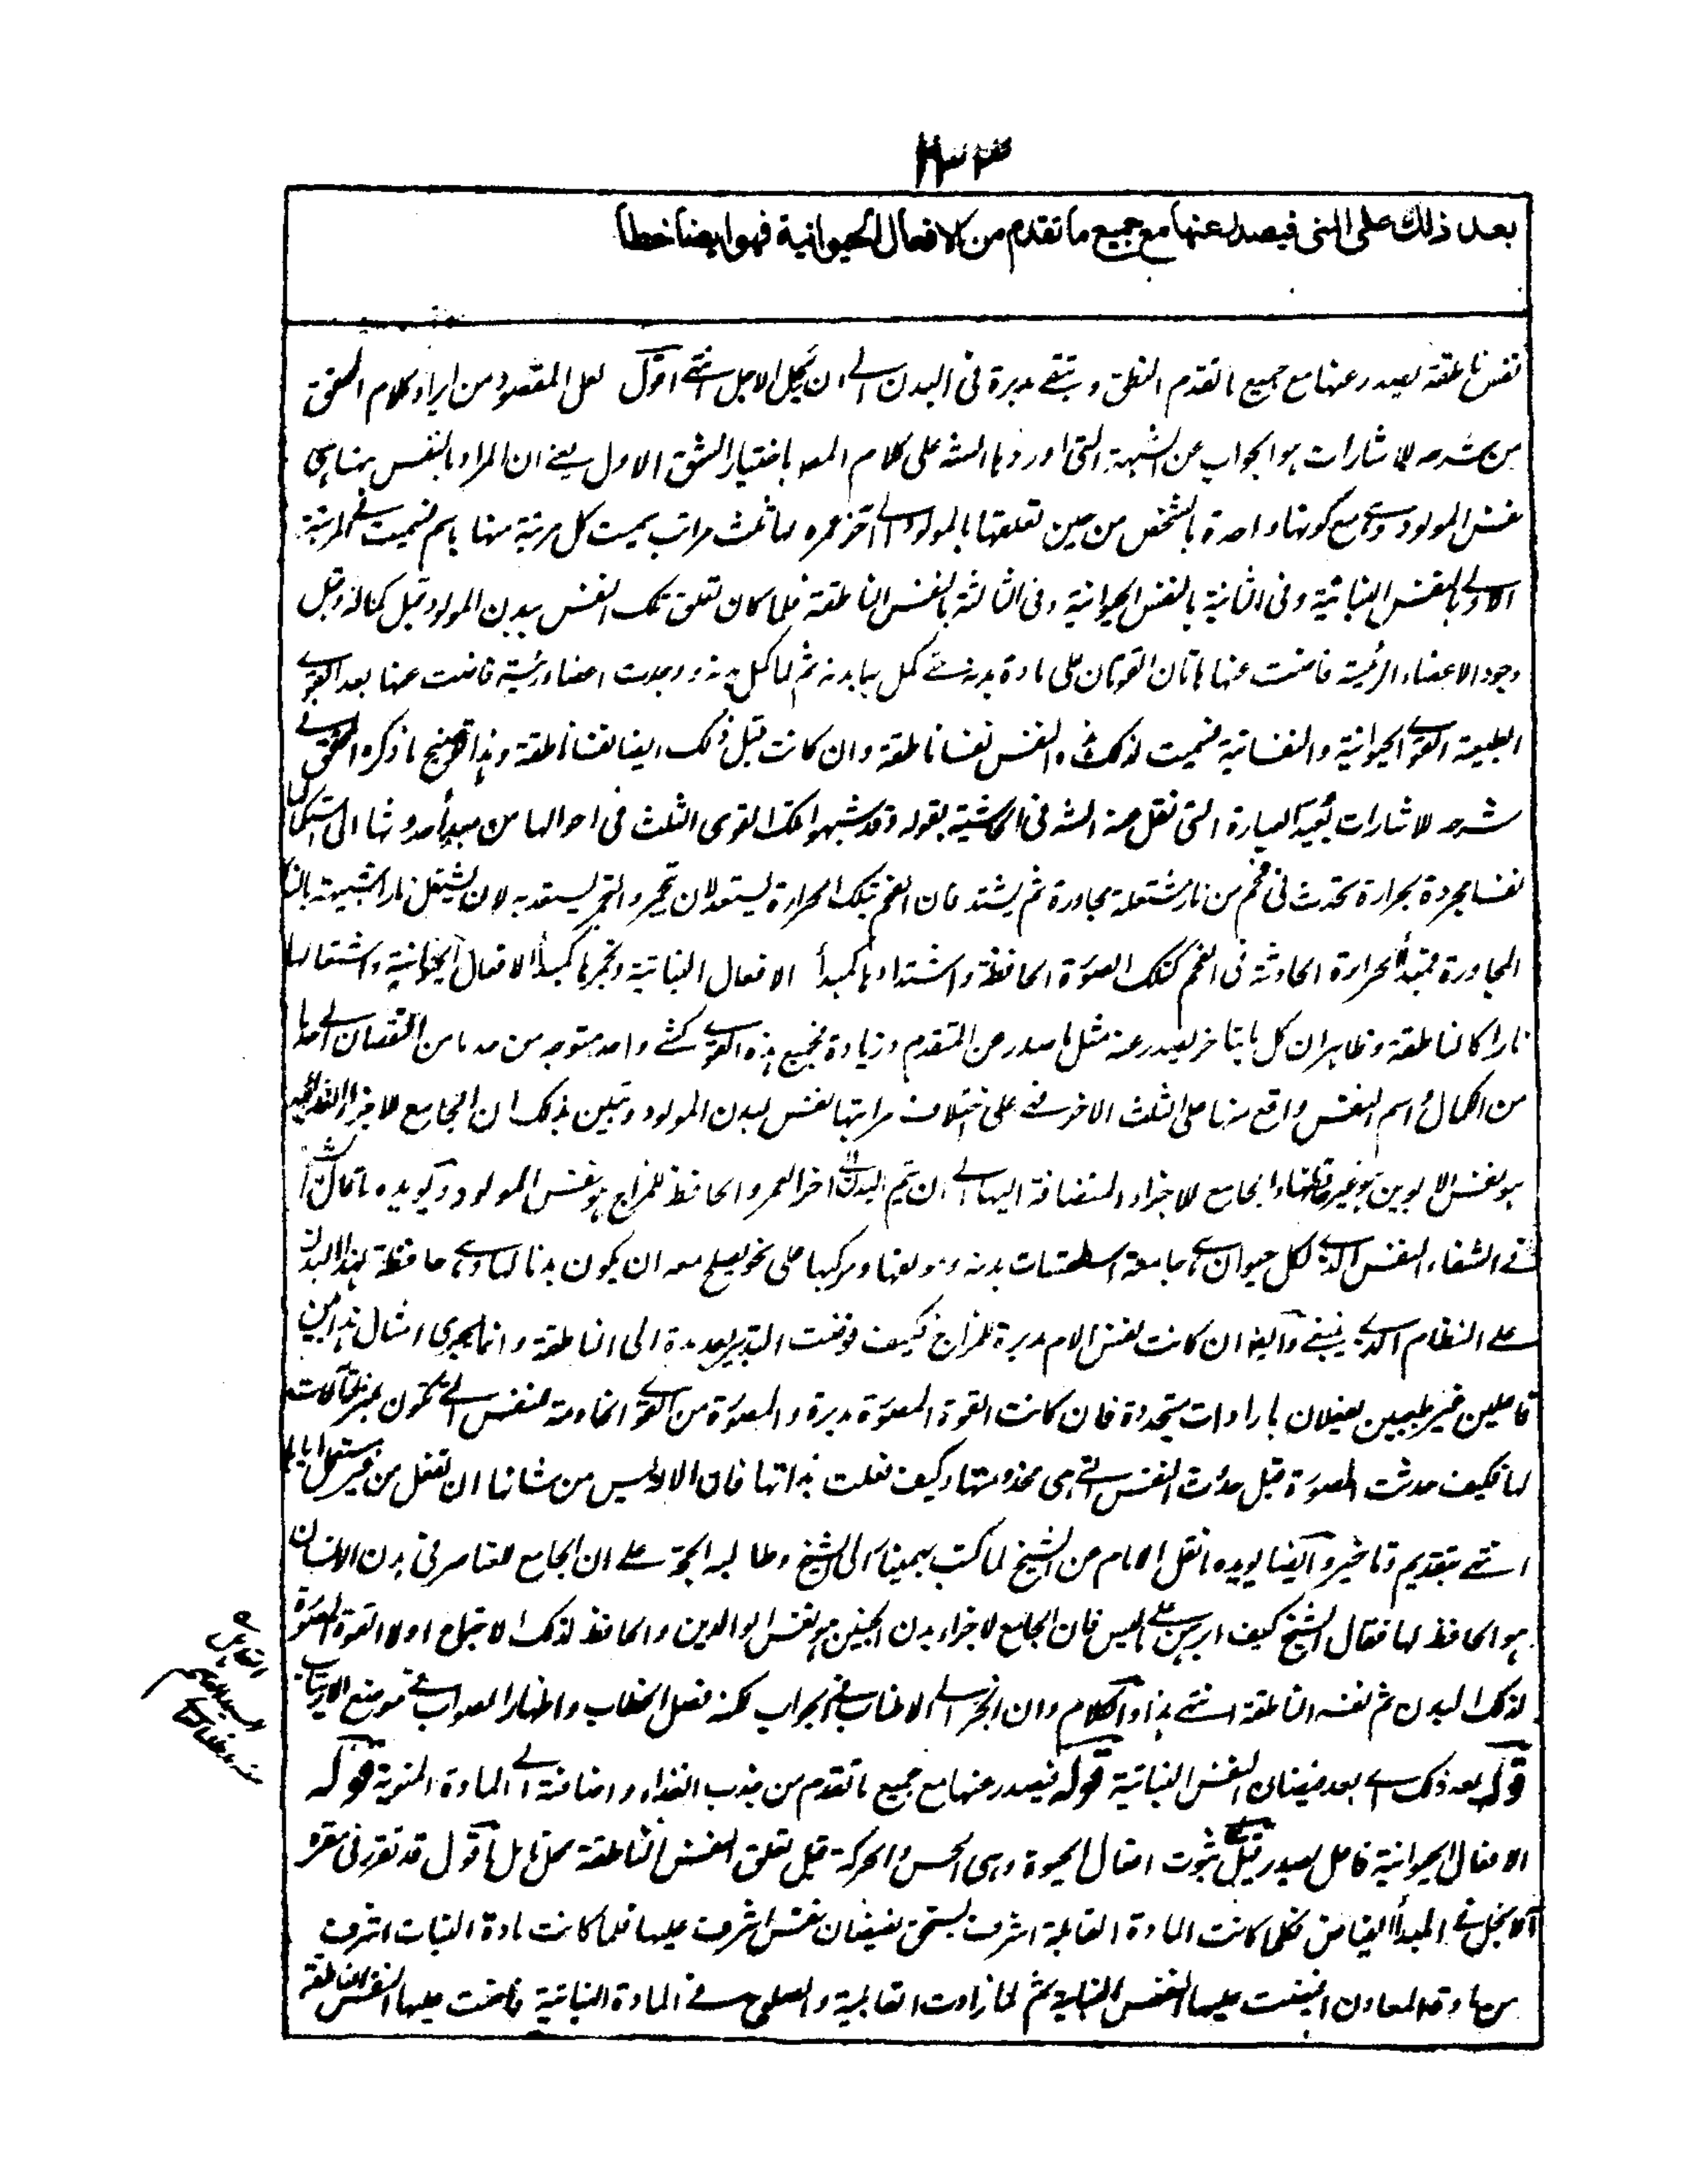 ٢٣٣
بعد ذلك على النى فيصدر عنها مع جميع ما تقدم من الافعال الحيوانية فهو ايضا خطأ
نفس ناطقة يصدر عنها مع جميع ما تقدم النطق و تبقے مدبرة فى البدن الے ان يحل الاجل انتہے اقول لعل المقصود من ايراد كلام المحقق
من شرحه للاشارات هو الجواب عن الشبهة التى اوردها الشه على كلام المصه باختيار الشق الاول يعنے ان المراد بالنفس ههنا هى
نفس المولود وهے مع كونها واحدة بالشخص من حين تعلقها بالمولود الے آخر عمره لها ثلث مراتب سميت كل مرتبة منها باسم فسميت فے المرتبة
الاولے بالنفس النباتية وفى الثانية بالنفس الحيوانية وفى الثالثة بالنفس الناطقة فلما كان تعلق تلك النفس ببدن المولود قبل كماله وقبل
وجود الاعضاء الرئيسة فاضت عنها هاتان القوتان على مادة بدنه حتے كمل بها بدنه ثم لما كمل بدنه ووجدت اعضاء رئيسة فاضت عنها بعد القوے
الطبيعية القوے الحيوانية والنفسانية فسميت لذلك النفس نفسا ناطقة وان كانت قبل ذلك ايضا نفسا ناطقة وهذا توضيح ما ذكره المحقق فے
شرحه للاشارات العبارة التى نقل عنه الشه فى الحاشية بقوله وقد شبهوا تلك القوى الثلث فى احوالها من مبدأ حدوثها الى استكمالها
نفسا مجردة بحرارة تحدث فى فحم من نار مشتعلة مجاورة ثم يشتد فان الفحم بتلك الحرارة يستعد لان يتجمر والتجمر يستعد به لان يشتعل نارا شبيهة بالنار
المجاورة فمبدأ الحرارة الحادثة فى الفحم كتلك الصورة الحافظة واشتدادها كمبدأ الافعال النباتية وتجمرها كمبدأ الافعال الحيوانية واشتعالها
نارا كالناطقة وظاهر ان كل ما يتاخر يصدر عنه مثل ما صدر عن المتقدم وزيادة فجميع هذه القوے كشے واحد متوجه من حد ما من النقصان الے حد ما
من الكمال واسم النفس واقع منها على الثلث الاخر فهے على اختلاف مراتبها نفس لبدن المولود وتبين بذلك ان الجامع للاجزاء الغذائية
هو نفس الابوين وهو غير حافظها والجامع للاجزاء المنضافة اليها الے ان يتم البدن الے اخر العمر والحافظ للمزاج هو نفس المولود ويؤيده ما قال الشيخ
فے الشفاء النفس الذے لكل حيوان هے جامعة اسطقسات بدنه ومؤلفها ومركبها على نحو يصلح معه ان يكون بدنا لها وهے حافظة لهذا البدن
علے النظام الذے ينبغے وايضا ان كانت نفس الام مدبرة للمزاج فكيف فوضت التدبير بعد مدة الى الناطقة وانما يجرى امثال هذا بين
فاعلين غير طبيعيين يفعلان بارادات متجددة فان كانت القوة المصورة مدبرة والمصورة من القوے الخادمة للنفس التے تكون بمنزلة آلات
لها فكيف حدثت المصورة قبل حدوث النفس التے هى مخدومتها وكيف فعلت بذاتها فان الآلة ليس من شانها ان تفعل من غير مستعمل اياها
انتہے بتقديم وتاخير وايضا يؤيده ما نقل الامام عن الشيخ لما كتب بهمنيار الى الشيخ وطالبه الحجة علے ان الجامع للعناصر فى بدن الانسان
هو الحافظ لها فقال الشيخ كيف ابرهن علے ما ليس فان الجامع لاجزاء بدن الجنين هو نفس الوالدين والحافظ لذلك الاجتماع اولا القوة المصورة
لذلك البدن ثم نفسه الناطقة انتہے هذا والكلام وان انجر الے الاطناب فے الجواب لكنه فصل الخطاب واظهار الصواب فے موضع الارتياب
قوله بعد ذلك اے بعد فيضان النفس النباتية قوله فيصدر عنها مع جميع ما تقدم من جذب الغذاء واضافته الے المادة المنوية قوله
الافعال الحيوانية فاعل يصدر قيل ثبوت افعال الحيوة وهى الحس والحركة قبل تعلق النفس الناطقة محل تامل اقول قد تقرر فى مقره
ان لا بخل فے المبدأ الفياض فكلما كانت المادة القابلة اشرف يستحق بفيضان نفس اشرف عليها فلما كانت مادة النبات اشرف
من مادة المعادن افيضت عليها النفس النباتية ثم لما زادت القابلية والصلوح فے المادة النباتية فاضت عليها النفس الناطقة